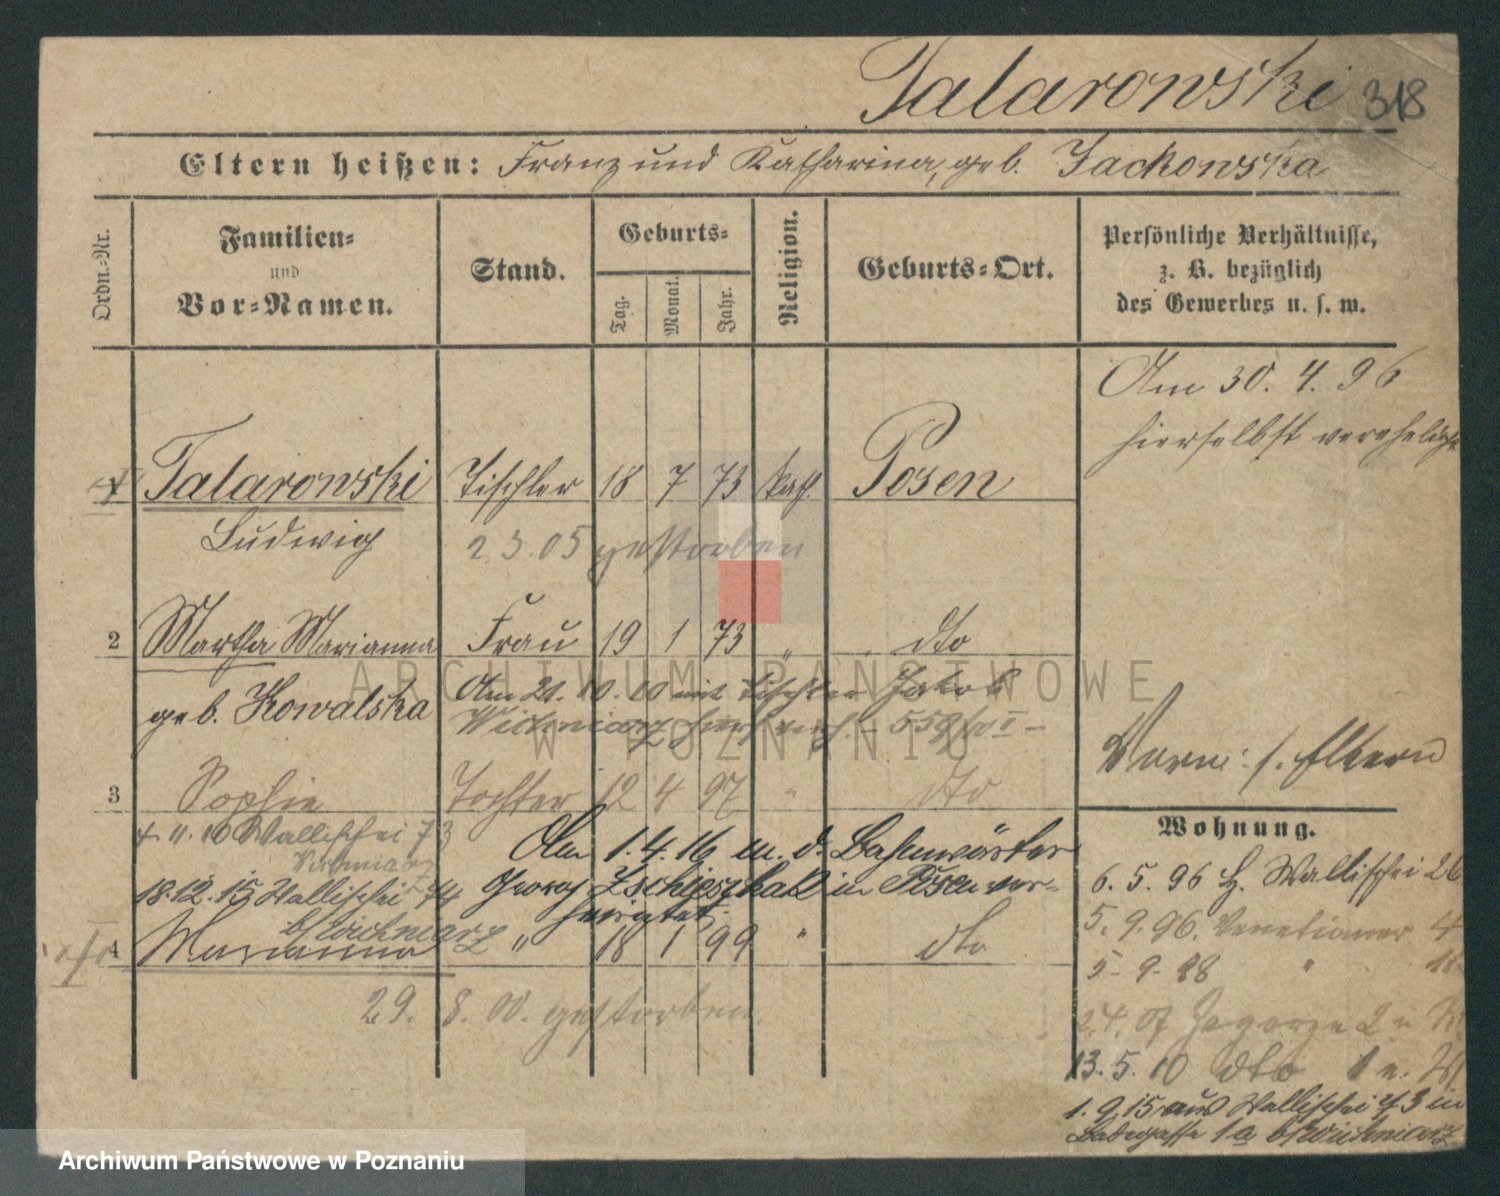 Talarowski 318
Eltern heißen: Franz und Katharina, geb. Jackowska
Ordn.-Nr.
Familien-
und
Vor-Namen.
Stand.
Geburts-
Tag.
Monat.
Jahr.
Religion.
Geburts-Ort.
Persönliche Verhältnisse,
z. B. bezüglich
des Gewerbes u. s. w.
Am 30. 4. 96
hierselbst verehelicht
1 Talarowski Tischler 18 7 73 kath. Posen
Ludwig
2.3.05 gestorben
2 Martha Marianna Frau 19 1 73 " dto
geb. Kowalska
Am 21. 10. 10 mit Tischler Jakob
Wichniarz
Verm: s. Eltern
3 Sophie Tochter 12 4 97 " dto
Wohnung.
4. 11. 10 Wallischei 73
Wichniarz
Am 1. 4. 16 m. d. Bahnwärter
18.12.15 Wallischei 74
Georg in Posen ver-
heiratet.
b/Wichniarz
4 Marianna " 18 1 99 " dto
29. 8. 00. gestorben.
6. 5. 96 H. Wallischei 26
5. 9. 96. Venetianer 4
5. 9. 98 "
24. 07 Zagorze 2
13. 5. 10 dto 1
1. 9. 15 aus Wallischei 73 in
Badegasse 1a b/Wichniarz
ARCHIWUM PAŃSTWOWE
W POZNANIU
Archiwum Państwowe w Poznaniu